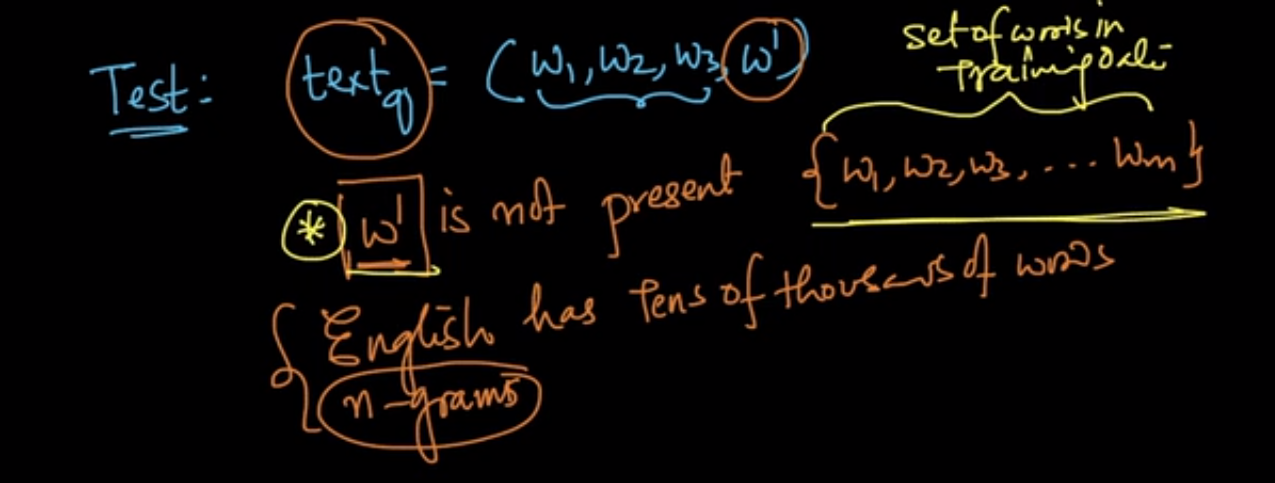 Test: text_q = (w₁, w₂, w₃, w')
set of words in
training data
* w' is not present {w₁, w₂, w₃, .... wₘ}
English has tens of thousands of words
n-grams